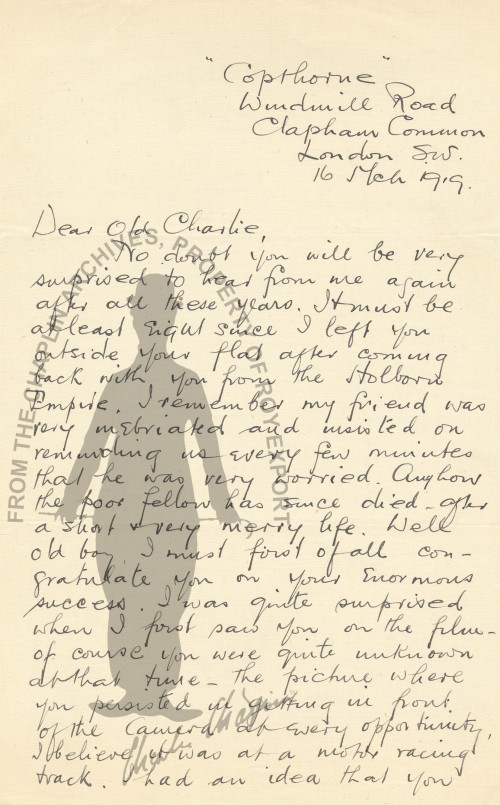 "Copthorne"
Windmill Road
Clapham Common
London S.W.
16 Mch 1919.
Dear Old Charlie,
No doubt you will be very
surprised to hear from me again
after all these years. It must be
at least Eight since I left you
outside your flat after coming
back with you from the Holborn
Empire. I remember my friend was
very inebriated and insisted on
reminding us every few minutes
that he was very worried. Anyhow
the poor fellow has since died - after
a short & very merry life. Well
old boy I must first of all con-
gratulate you on your Enormous
success. I was quite surprised
when I first saw you on the film -
of course you were quite unknown
at that time - the picture where
you persisted in getting in front
of the Camera at every opportunity,
I believe it was at a motor racing
track. I had an idea that you
FROM THE CHAPLIN ARCHIVES, PROPERTY OF ROY EXPORT
Charlie Chaplin